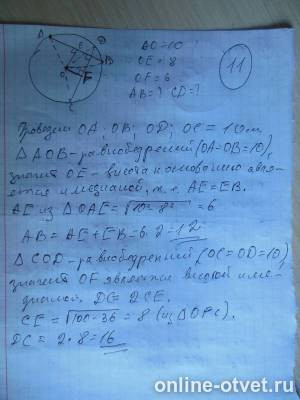 A
D
B
E
F
O
C
AO=10
OE=8
OF=6
AB=? CD=?
11
Проводим OA; OB; OD; OC = 10 см.
△AOB - равнобедренный (OA=OB=10),
значит OE - высота к основанию явля-
ется и медианой, т.е. AE=EB.
AE из △OAE = √10²-8² = 6
AB = AE+EB = 6·2 = 12
△COD - равнобедренный (OC=OD=10)
значит OF является высотой и ме-
дианой. DC = 2CE.
CE = √100-36 = 8 (из △OFC).
DC = 2·8 = 16
online-otvet.ru